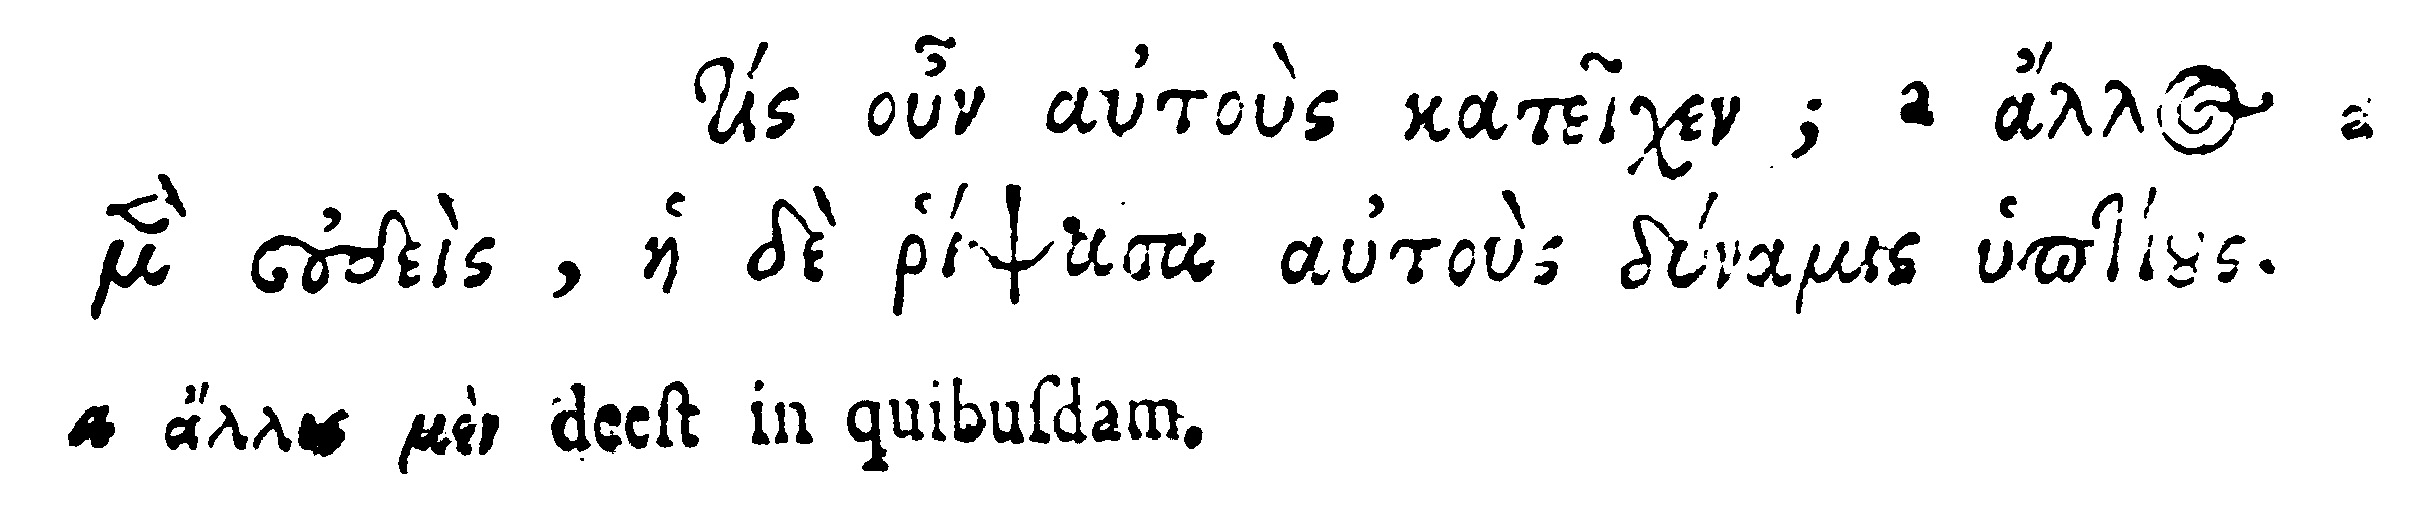 Τίς οὖν αὐτοὺς κατεῖχεν ; a ἄλλος a
μὲν οὐδεὶς , ἡ δὲ ῥίψασα αὐτοὺς δύναμις ὑπτίους.
a ἄλλος μὲν deeſt in quibuſdam.